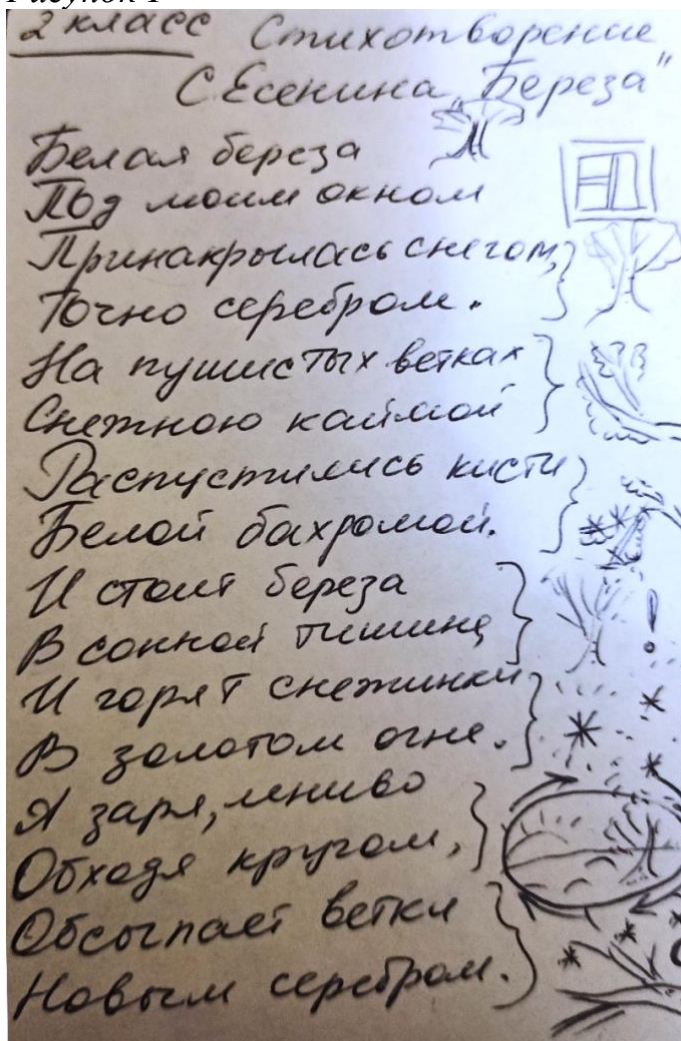 Рисунок 1
2 класс Стихотворение
С.Есенина „Береза"
Белая береза
Под моим окном
Принакрылась снегом,
Точно серебром.
На пушистых ветках
Снежною каймой
Распустились кисти
Белой бахромой.
И стоит береза
В сонной тишине
И горят снежинки
В золотом огне.
А заря, лениво
Обходя кругом,
Обсыпает ветки
Новым серебром.